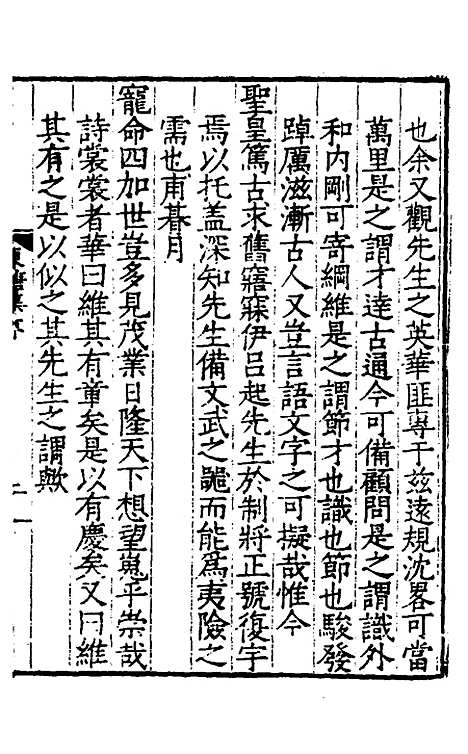 也余又觀先生之英華匪專于兹遠規沈畧可當
萬里是之謂才達古通今可備顧問是之謂識外
和内剛可寄綱維是之謂節才也識也節也駿發
踔厲滋漸古人又豈言語文字之可擬哉惟今
聖皇篤古求舊寤寐伊吕起先生於制將正號復宇
焉以托盖深知先生備文武之
而能爲夷險之
需也甫朞月
寵命四加世豈多見茂業日隆天下想望嵬乎崇哉
詩裳裳者華曰維其有章矣是以有慶矣又曰維
其有之是以似之其先生之謂歟